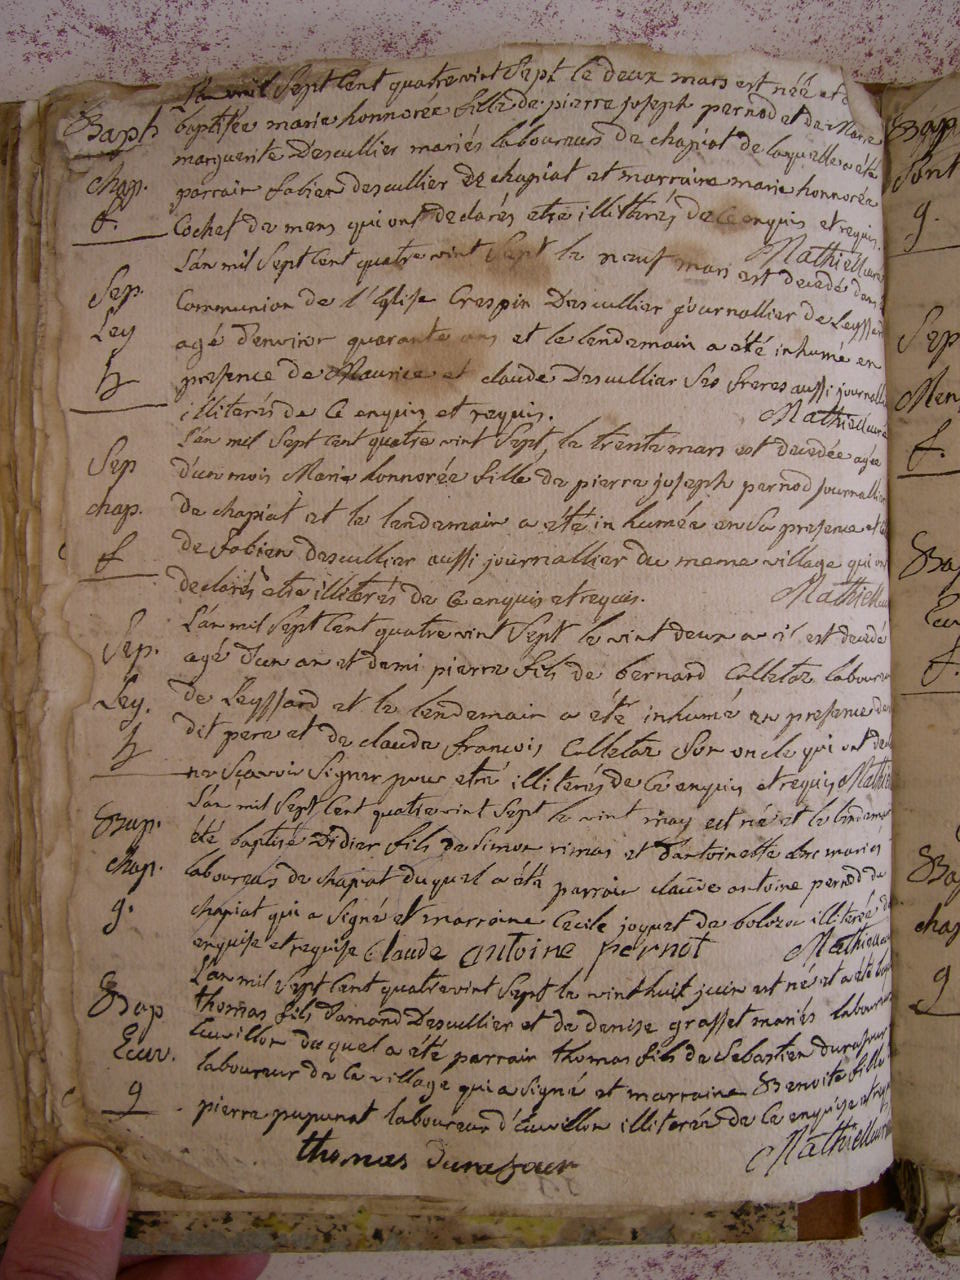 L'an mil Sept Cent quatre vint Sept le deux mars est née et
Baph baptisée marie honnorée fille de pierre joseph pernod et de Marie
marguerite Descullier mariés laboureurs de chapiat de laquelle a été
chap. parrain fabien descullier de chapiat et marraine marie honnorée
f. Cochet de mens qui ont declarés etre illiterés de ce enquis et requis.
Mathieu curé
L'an mil Sept Cent quatre vint Sept le neuf mars est decedé dans
Sep. Communion de l'Eglise Crespin Descullier journallier de Leyssard
Ley agé d'environ quarante ans et le lendemain a été inhumé en
h presence de Maurice et claude Descullier Ses freres aussi journalliers
illiterés de Ce enquis et requis. Mathieu curé
L'an mil Sept Cent quatre vint Sept, le trente mars est decedée agée
Sep d'un mois Marie honnorée fille de pierre joseph pernod journallier
chap. de chapiat et le lendemain a été in humée en Sa presence et
f de fabien descullier aussi journallier du meme village qui ont
declarés etre illiterés de Ce enquis et requis. Mathieu
L'an mil Sept Cent quatre vint Sept le vint deux avril est decedé
Sep. agé d'un an et demi pierre fils de bernard Colletaz laboureur
Ley. de Leyssard et le lendemain a été inhumé en presence du
dit pere et de claude francois Colletaz Son oncle qui ont
h ne Scavoir Signer pour etre illiterés de Ce enquis et requis Mathieu
L'an mil Sept Cent quatre vint Sept le vint may est né et le lendemain
Bap. été baptisé Didier fils de Simon rimas et d'antoinette mariés
chap. laboureurs de chapiat duquel a été parrain claude antoine pernod de
g. chapiat qui a Signé et marraine Cecile joguet de bolozon illiterée de
enquise et requise Claude antoine pernot Mathieu
L'an mil Sept Cent quatre vint Sept le vint huit juin est né et a été
Bap thomas fils d'amand Descullier et de denise grasset mariés laboureurs
Cuvillon duquel a été parrain thomas fils de Sebastien durafour
Cuv. laboureur de Ce village qui a Signé et marraine Benoite fille
g pierre pupunat laboureur d'Cuvillon illiterée de Ce enquise et
thomas durafour Mathieu curé
Bap
Pont
g.
Sep
Men
f.
Ba
Cu
f.
Ba
chap
g